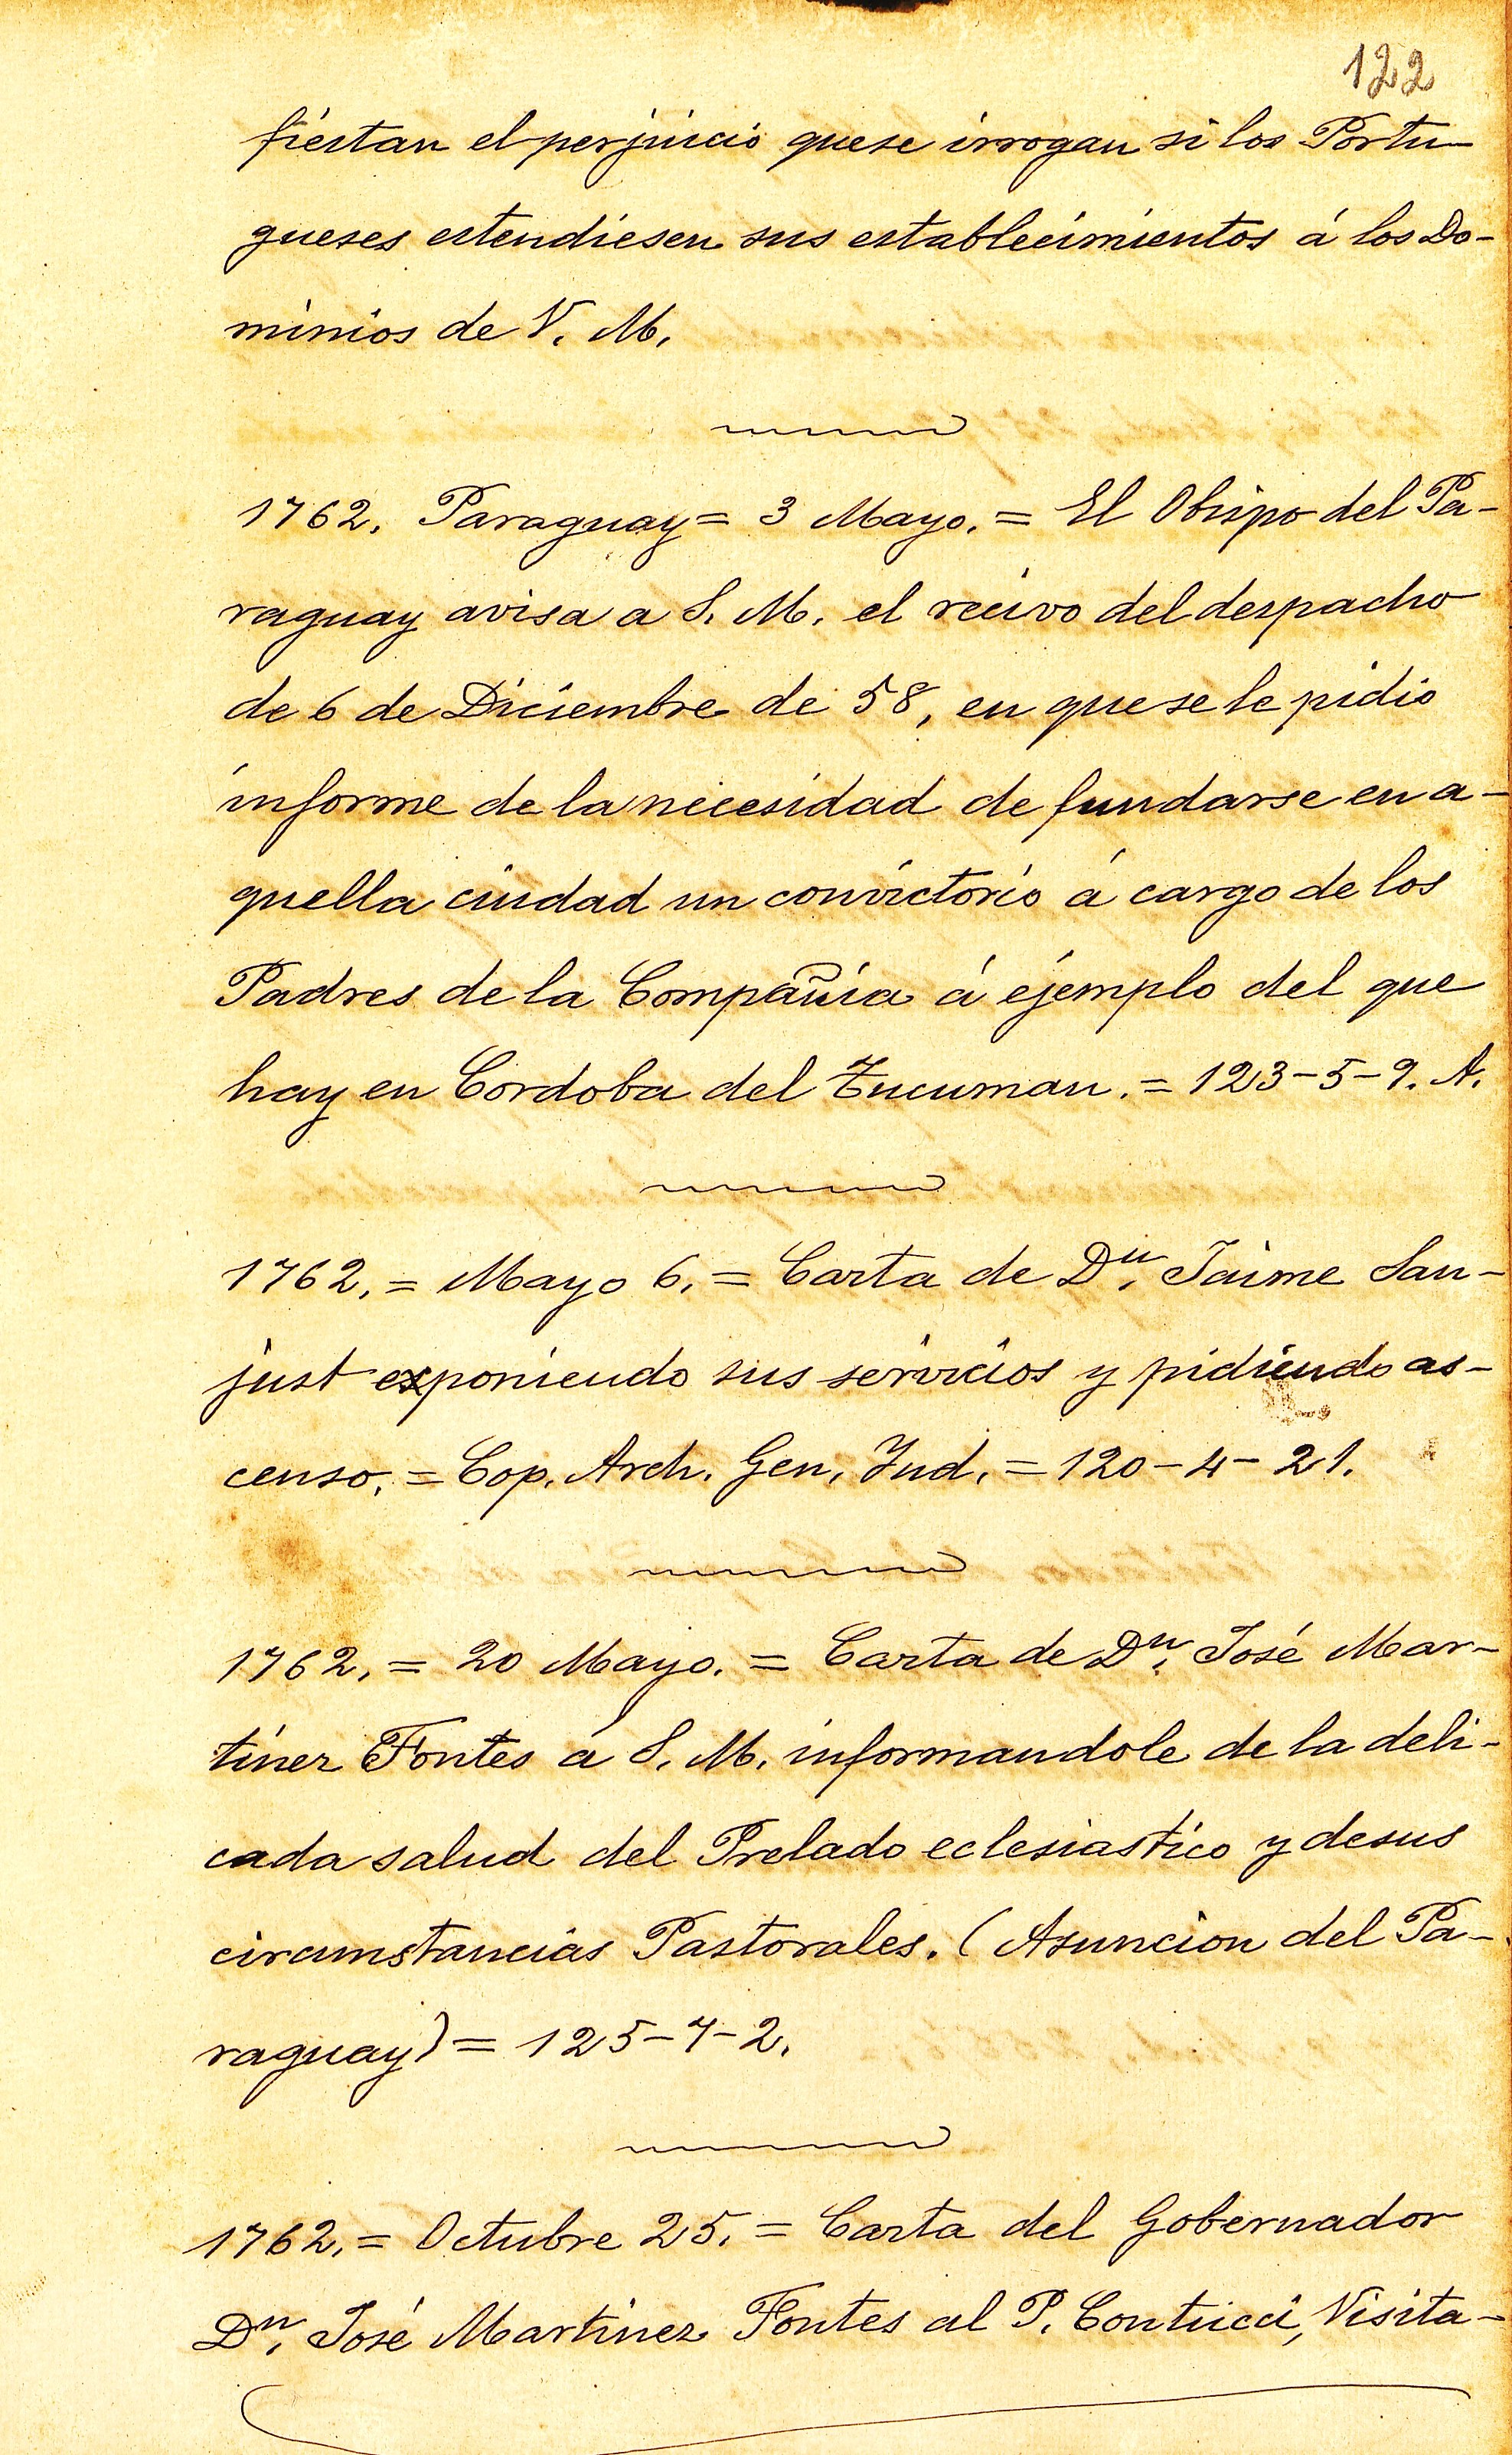 122
fiestan el perjuicio que se irrogan si los Portu-
gueses estendiesen sus establecimientos á los Do-
minios de V. M.
1762. Paraguay = 3 Mayo. = El Obispo del Pa-
raguay avisa a S. M. el recivo del despacho
de 6 de Diciembre de 58, en que se le pidio
informe de la necesidad de fundarse en a-
quella ciudad un convictorio á cargo de los
Padres de la Compañia á ejemplo del que
hay en Cordoba del Tucuman. = 123-5-9. A.
1762. = Mayo 6. = Carta de Dn. Jaime San-
just exponiendo sus servicios y pidiendo as-
censo. = Cop. Arch. Gen. Ind. = 120-4-21.
1762. = 20 Mayo. = Carta de Dn. José Mar-
tinez Fontes á S. M. informandole de la deli-
cada salud del Prelado eclesiastico y de sus
circumstancias Pastorales. (Asuncion del Pa-
raguay) = 125-7-2.
1762. = Octubre 25. = Carta del Gobernador
Dn. José Martinez Fontes al P. Contucci, Visita-